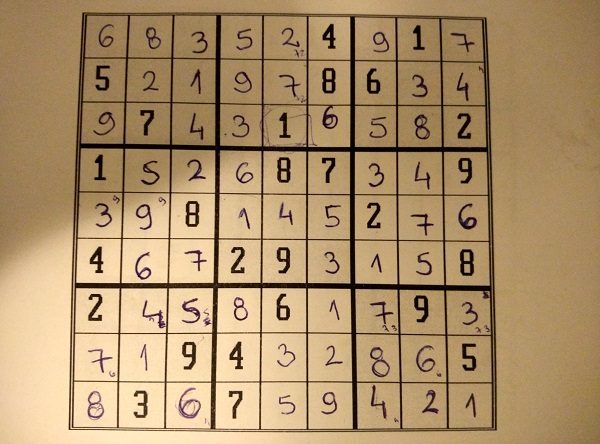 6 8 3 5 2 4 9 1 7
5 2 1 9 7 8 6 3 4
9 7 4 3 1 6 5 8 2
1 5 2 6 8 7 3 4 9
3 9 8 1 4 5 2 7 6
4 6 7 2 9 3 1 5 8
2 4 5 8 6 1 7 9 3
7 1 9 4 3 2 8 6 5
8 3 6 7 5 9 4 2 1